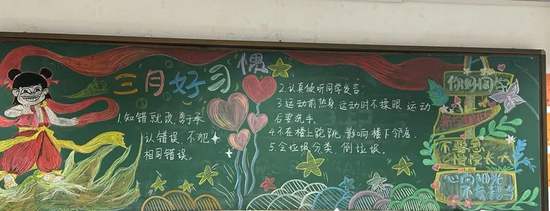 三月好习偶
1.知错就改,勇于承
认错误,不犯
相同错误。
2.认真倾听同学发言
3.运动前热身,运动时不揉眼,运动
后要洗手。
4.不在楼上跑跳,影响楼下邻居。
5.会垃圾分类,倒垃圾。
你好同学
不要急
慢慢长大
心向阳光